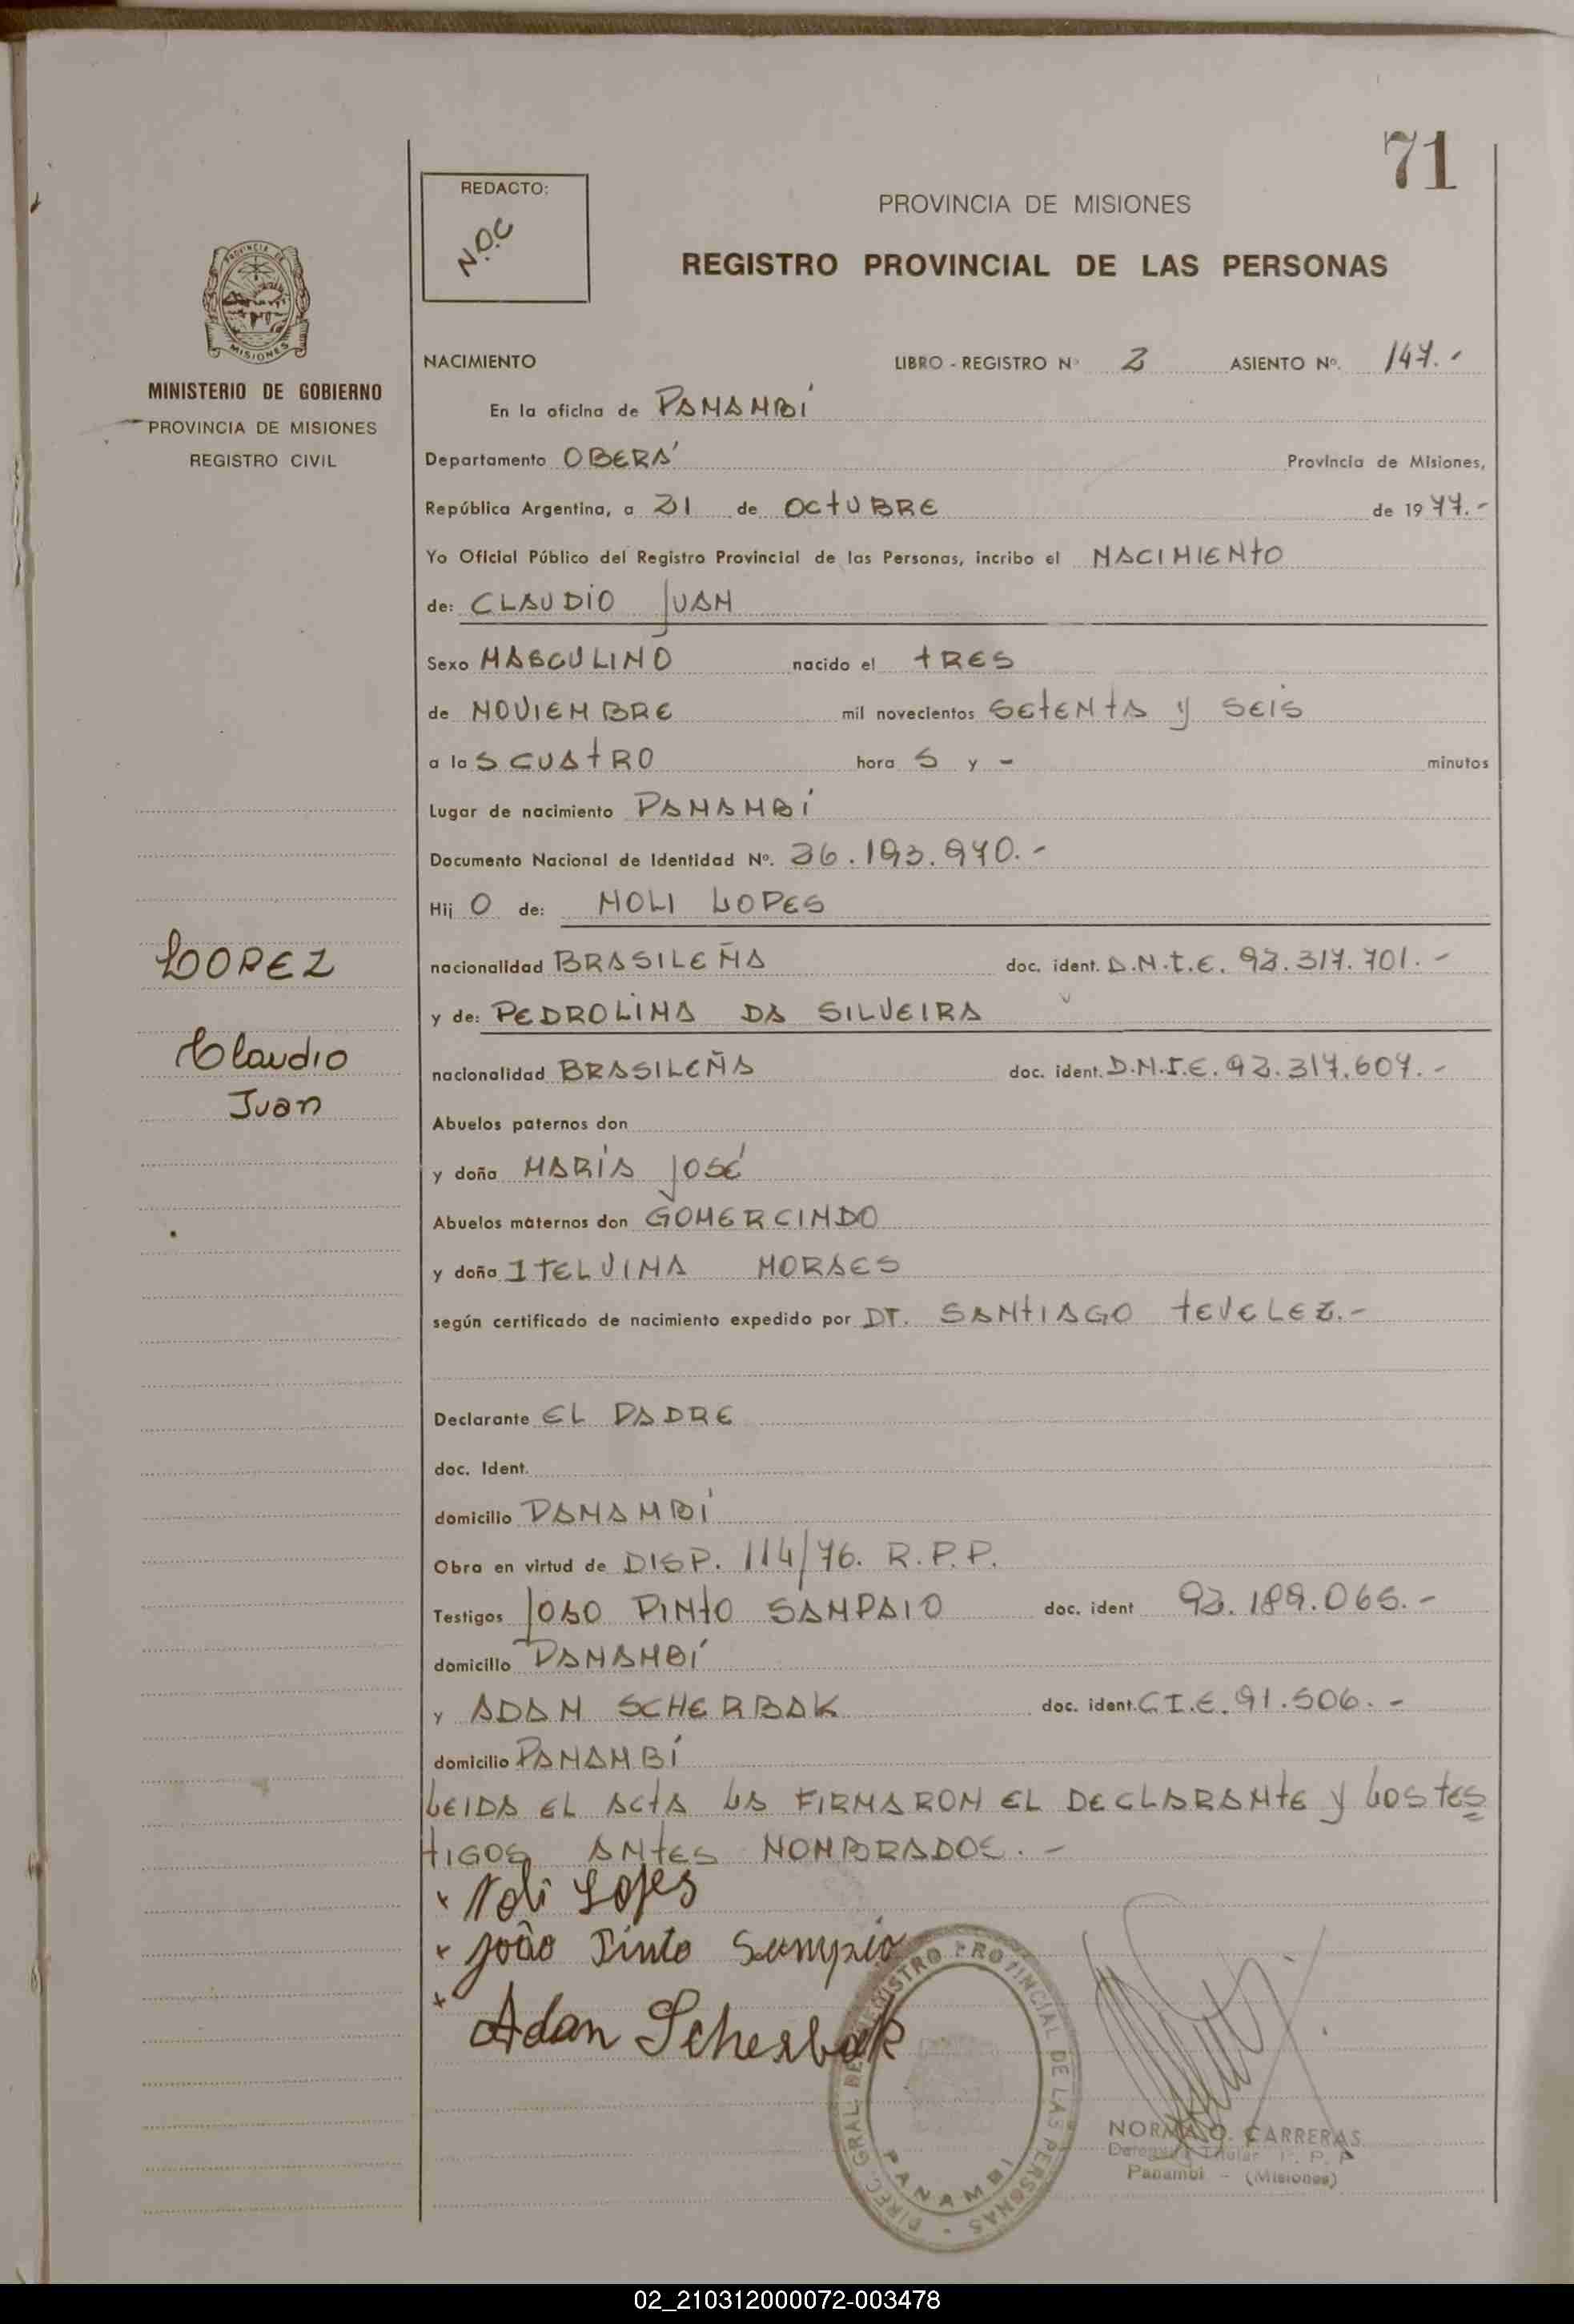 71
REDACTO:
N.O.C
PROVINCIA DE MISIONES
REGISTRO PROVINCIAL DE LAS PERSONAS
PROVINCIA DE
MISIONES
MINISTERIO DE GOBIERNO
PROVINCIA DE MISIONES
REGISTRO CIVIL
NACIMIENTO LIBRO - REGISTRO Nº 2 ASIENTO Nº. 147.-
En la oficina de PANAMBÍ
Departamento OBERÁ Provincia de Misiones,
República Argentina, a 21 de OCTUBRE de 1977.-
Yo Oficial Público del Registro Provincial de las Personas, incribo el NACIMIENTO
de: CLAUDIO JUAN
Sexo MASCULINO nacido el TRES
de NOVIEMBRE mil novecientos SETENTA y SEIS
a las CUATRO horas y - minutos
Lugar de nacimiento PANAMBÍ
Documento Nacional de Identidad Nº. 26.193.970.-
Hij O de: NOLI LOPES
LOPEZ
nacionalidad BRASILEÑA doc. ident. D.N.I.E. 92.317.701.-
y de: PEDROLINA DA SILVEIRA
Claudio
nacionalidad BRASILEÑA doc. ident. D.N.I.E. 92.317.607.-
Juan
Abuelos paternos don
y doña MARÍA JOSÉ
Abuelos maternos don GOMERCINDO
y doña ITELVINA MORAES
según certificado de nacimiento expedido por DT. SANTIAGO TEVELEZ.-
Declarante EL PADRE
doc. Ident.
domicilio PANAMBÍ
Obra en virtud de DISP. 114/76. R.P.P.
Testigos JOAO PINTO SAMPAIO doc. ident 92.189.065.-
domicilio PANAMBÍ
y ADAN SCHERBAK doc. ident. C.I.E. 91.506.-
domicilio PANAMBÍ
LEIDA EL ACTA LA FIRMARON EL DECLARANTE y LOS TES
TIGOS ANTES NOMBRADOS.-
x Noli Lopes
x João Pinto Sampaio
x Adan Scherbak
DIREC. GRAL. DEL REGISTRO PROVINCIAL DE LAS PERSONAS
PANAMBI
NORMA O. CARRERAS
Delegada Titular R. P. P
Panambí - (Misiones)
02_210312000072-003478